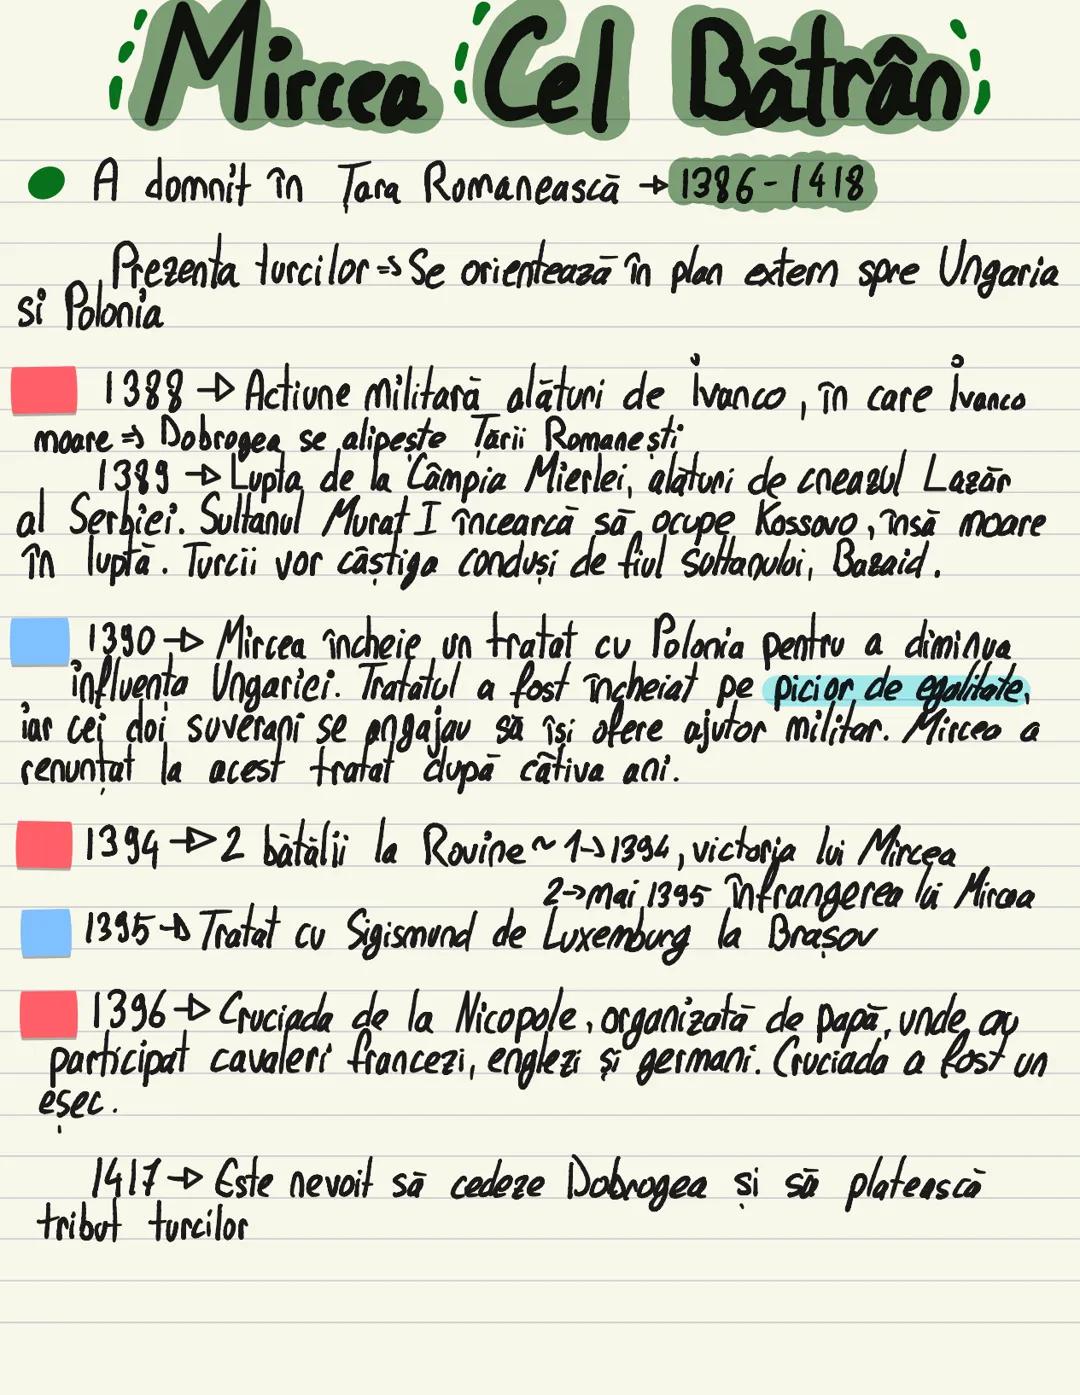 Mircea Cel Bătrân
A domnit în Tara Romanească → 1386-1418
Prezența turcilor => Se orientează în plan extern spre Ungaria
si Polonia
1388 → Actiune militară alături de Ivanco, în care Ivanco
moare => Dobrogea se alipește Tării Romanești
1389 → Lupta de la Câmpia Mierlei, alături de cneazul Lazăr
al Serbiei. Sultanul Murat I încearcă să ocupe Kossovo, însă moare
în luptă. Turcii vor câștiga conduși de fiul sultanului, Bazaid.
1390 → Mircea încheie un tratat cu Polonia pentru a diminua
influența Ungariei. Tratatul a fost încheiat pe picior de egalitate,
iar cei doi suverani se angajau să își ofere ajutor militar. Mircea a
renunțat la acest tratat după câtiva ani.
1394 → 2 bătălii la Rovine ~ 1→1394, victoria lui Mircea
2→mai 1395 înfrangerea lui Mircea
1395 → Tratat cu Sigismund de Luxemburg la Brașov
1396 → Cruciada de la Nicopole, organizată de papă, unde au
participat cavaleri francezi, englezi și germani. Cruciada a fost un
eșec.
1417 → Este nevoit să cedeze Dobrogea și să platească
tribut turcilor